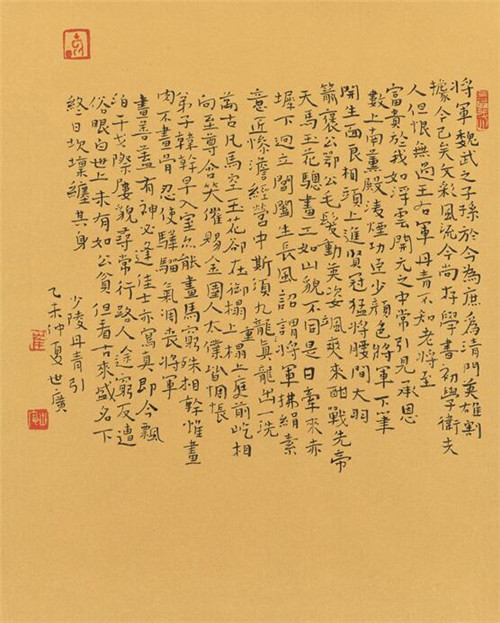 將軍魏武之子孫於今為庶為清門英雄割
據今已矣文彩風流今尚存學書初學衛夫
人但恨無過王右軍丹青不知老將至
富貴於我如浮雲開元之中常引見承恩
數上南薰殿淩煙功臣少顏色將軍下筆
開生面良相頭上進賢冠猛將腰間大羽
箭褒公鄂公毛髮動英姿颯爽來酣戰先帝
天馬玉花驄畫工如山貌不同是日牽來赤
墀下迥立閶闔生長風詔謂將軍拂絹素
意匠慘澹經營中斯須九重真龍出一洗
萬古凡馬空玉花卻在御榻上榻上庭前屹相
向至尊含笑催賜金圉人太僕皆惆悵
弟子韓幹早入室亦能畫馬窮殊相幹惟畫
肉不畫骨忍使驊騮氣凋喪將軍
畫善蓋有神必逢佳士亦寫真即今飄
泊干戈際屢貌尋常行路人途窮反遭
俗眼白世上未有如公貧但看古來盛名下
終日坎壈纏其身
少陵丹青引
乙未仲夏世廣